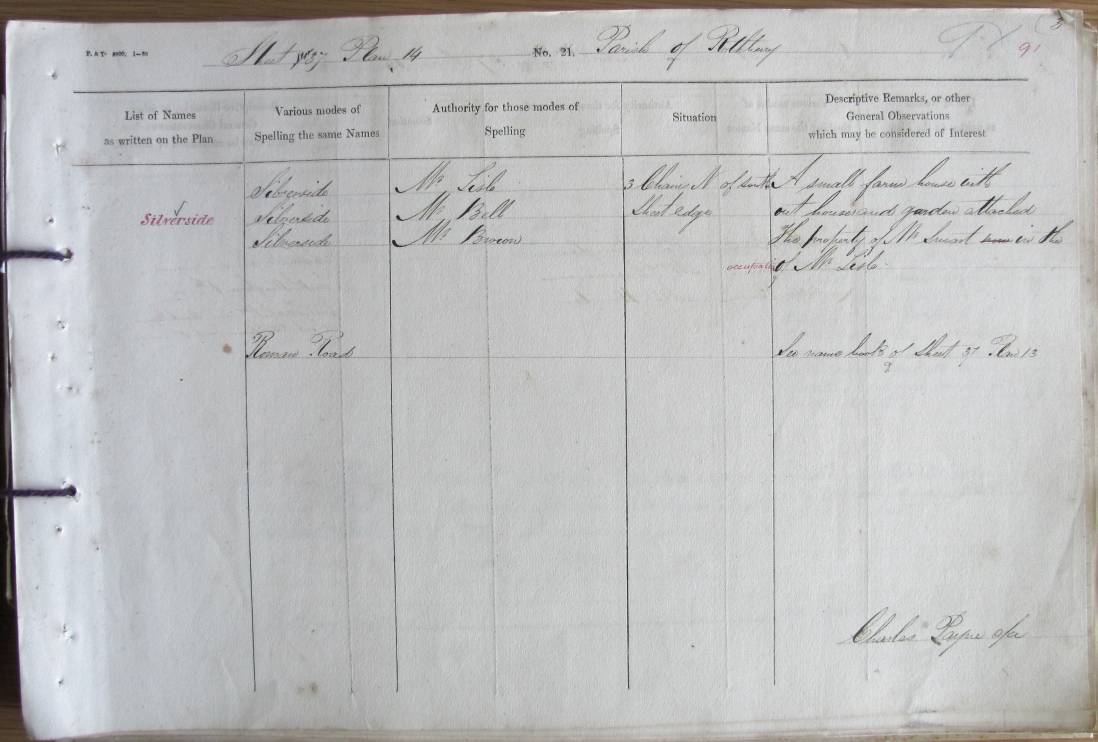 Sheet 37 Plan 14 No. 21. Parish of Rothbury 91
List of Names
as written on the Plan
Various modes of
Spelling the same Names
Authority for those modes of
Spelling
Situation
Descriptive Remarks, or other
General Observations
which may be considered of Interest
Silverside
Silverside
Silverside
Silverside
Mr Lisle
Mr Bell
Mr Brown
3 Chains N of south
Sheet edge
A small farm house with
out houses and garden attached
The property of Mr Smart in the
occupation of Mr Lisle
Roman Road
See name book of Sheet 37 Plan 13
Charles Payne c/a